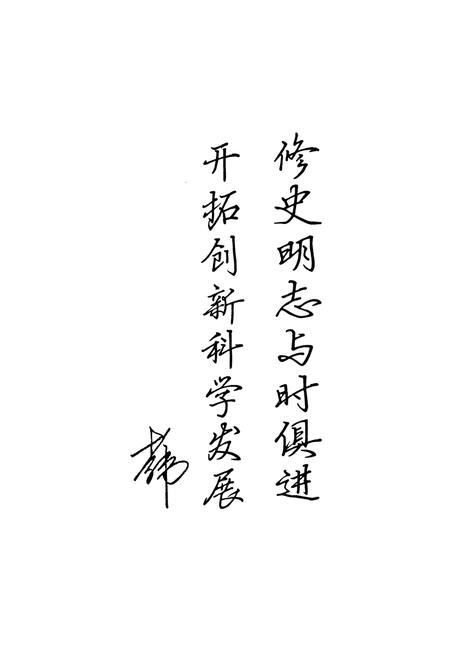 修史明志与时俱进
开拓创新科学发展